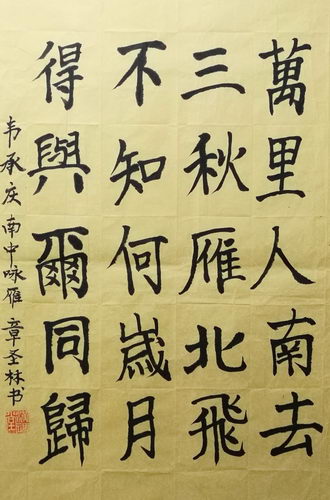 萬里人南去
三秋雁北飛
不知何歲月
得與爾同歸
韦承庆南中咏雁章圣林书